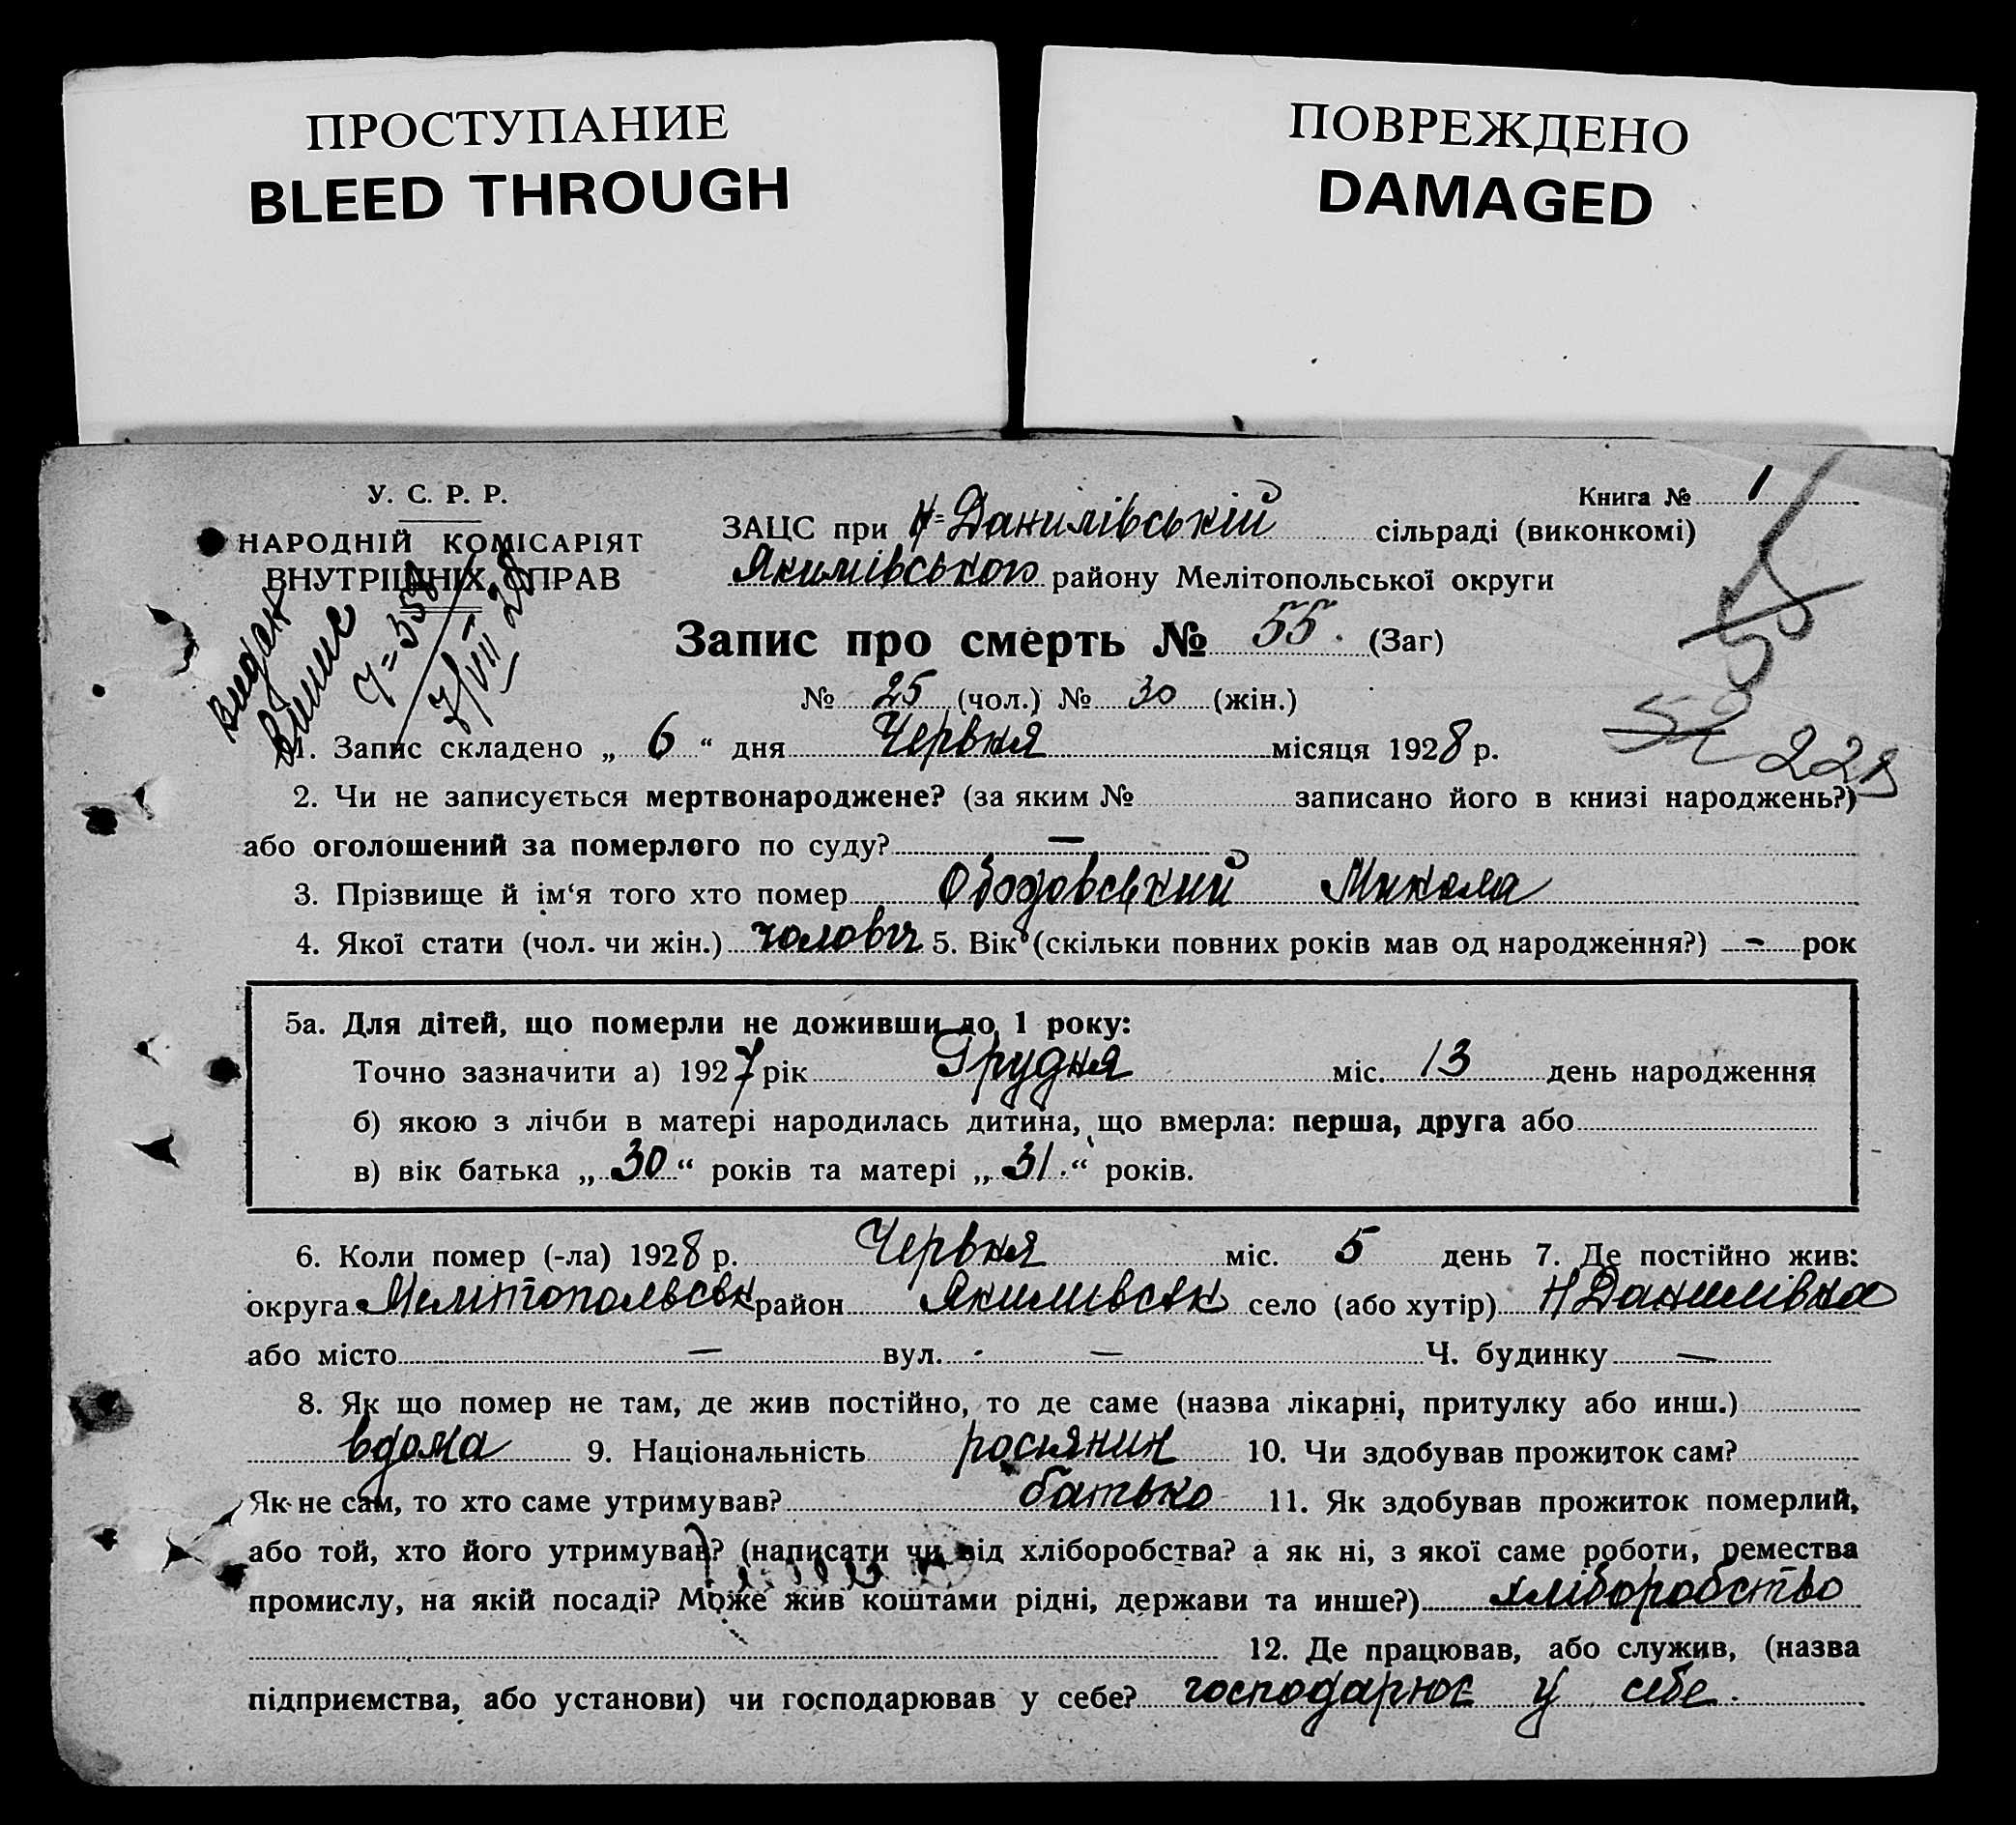 ПРОСТУПАНИЕ
BLEED THROUGH
ПОВРЕЖДЕНО
DAMAGED
У. С. Р. Р.
НАРОДНІЙ КОМІСАРІЯТ
ВНУТРІШНІХ СПРАВ
Книга № 1
ЗАЦС при Н-Данилівській сільраді (виконкомі)
Якимівського району Мелітопольської округи
Запис про смерть № 55. (Заг)
№ 25 (чол.) № 30 (жін.)
1. Запис складено „ 6 “ дня Червня місяця 1928 р.
2. Чи не записується мертвонароджене? (за яким № записано його в книзі народжень?)
або оголошений за померлого по суду? —
3. Прізвище й ім‘я того хто помер Ободовський Микола
4. Якої стати (чол. чи жін.) чолович 5. Вік (скільки повних років мав од народження?) - рок
5а. Для дітей, що померли не доживши до 1 року:
Точно зазначити а) 1927 рік Грудня міс. 13 день народження
б) якою з лічби в матері народилась дитина, що вмерла: перша, друга або
в) вік батька „ 30 “ років та матері „ 31. “ років.
6. Коли помер (-ла) 1928 р. Червня міс. 5 день 7. Де постійно жив:
округа Мелітопольськ район Якимівськ село (або хутір) Н Данилівка
або місто — вул. — Ч. будинку —
8. Як що помер не там, де жив постійно, то де саме (назва лікарні, притулку або инш.)
вдома 9. Національність росіянин 10. Чи здобував прожиток сам?
Як не сам, то хто саме утримував? батько 11. Як здобував прожиток померлий,
або той, хто його утримував? (написати чи від хліборобства? а як ні, з якої саме роботи, ремества
промислу, на якій посаді? Може жив коштами рідні, держави та инше?) хліборобство
12. Де працював, або служив, (назва
підприємства, або установи) чи господарював у себе? господарює у себе.